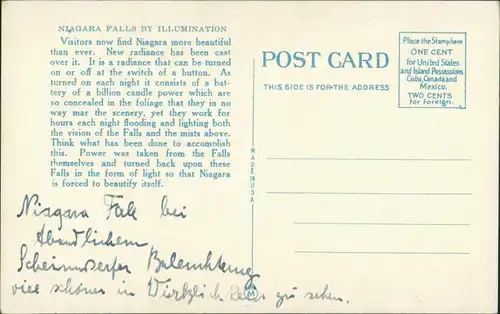 NIAGARA FALLS BY ILLUMINATION
Visitors now find Niagara more beautiful
than ever. New radiance has been cast
over it. It is a radiance that can be turned
on or off at the switch of a button. As
turned on each night it consists of a bat-
tery of a billion candle power which are
so concealed in the foliage that they in no
way mar the scenery, yet they work for
hours each night flooding and lighting both
the vision of the Falls and the mists above.
Think what has been done to accomplish
this. Power was taken from the Falls
themselves and turned back upon these
Falls in the form of light so that Niagara
is forced to beautify itself.
POST CARD
THIS SIDE IS FOR THE ADDRESS
Place the Stamp here
ONE CENT
for United States
and Island Possessions
Cuba, Canada and
Mexico.
TWO CENTS
for Foreign.
MADE IN USA
Niagara Fall bei
Abendlichem
Scheinwerfer Beleuchtung
viel schöner in Wirklichkeit zu sehen.